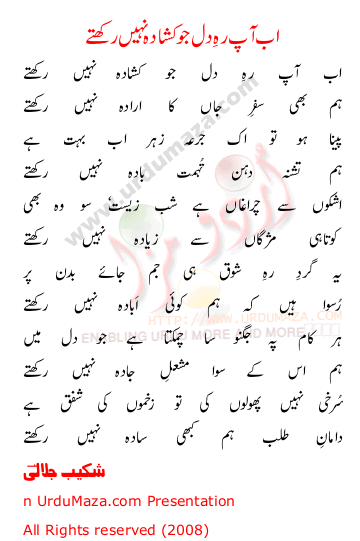 اب آپ رہِ دل جو کشادہ نہیں رکھتے
اب آپ رہِ دل جو کشادہ نہیں رکھتے
ہم بھی سفرِ جاں کا ارادہ نہیں رکھتے
پینا ہو تو اک جرعہ زہر اب بہت ہے
ہم تشنہ دہن تُہمت بادہ نہیں رکھتے
اشکوں سے چراغاں ہے شب زیست سو وہ بھی
کوتاہی مژگاں سے زیادہ نہیں رکھتے
یہ گردِ رہِ شوق ہی جم جائے بدن پر
رُسوا ہیں کہ ہم کوئی لبادہ نہیں رکھتے
ہر گام پہ جگنو سا چمکتا ہے جو دل میں
ہم اس کے سوا مشعلِ جادہ نہیں رکھتے
سُرخی نہیں پھولوں کی تو زخموں کی شفق ہے
دامانِ طلب ہم کبھی سادہ نہیں رکھتے
شکیب جلالی
n UrduMaza.com Presentation
All Rights reserved (2008)
www.urdumaza.com
اُردو مزا
HTTP://WWW.URDUMAZA.COM
ENABLING URDU MORE AND MORE